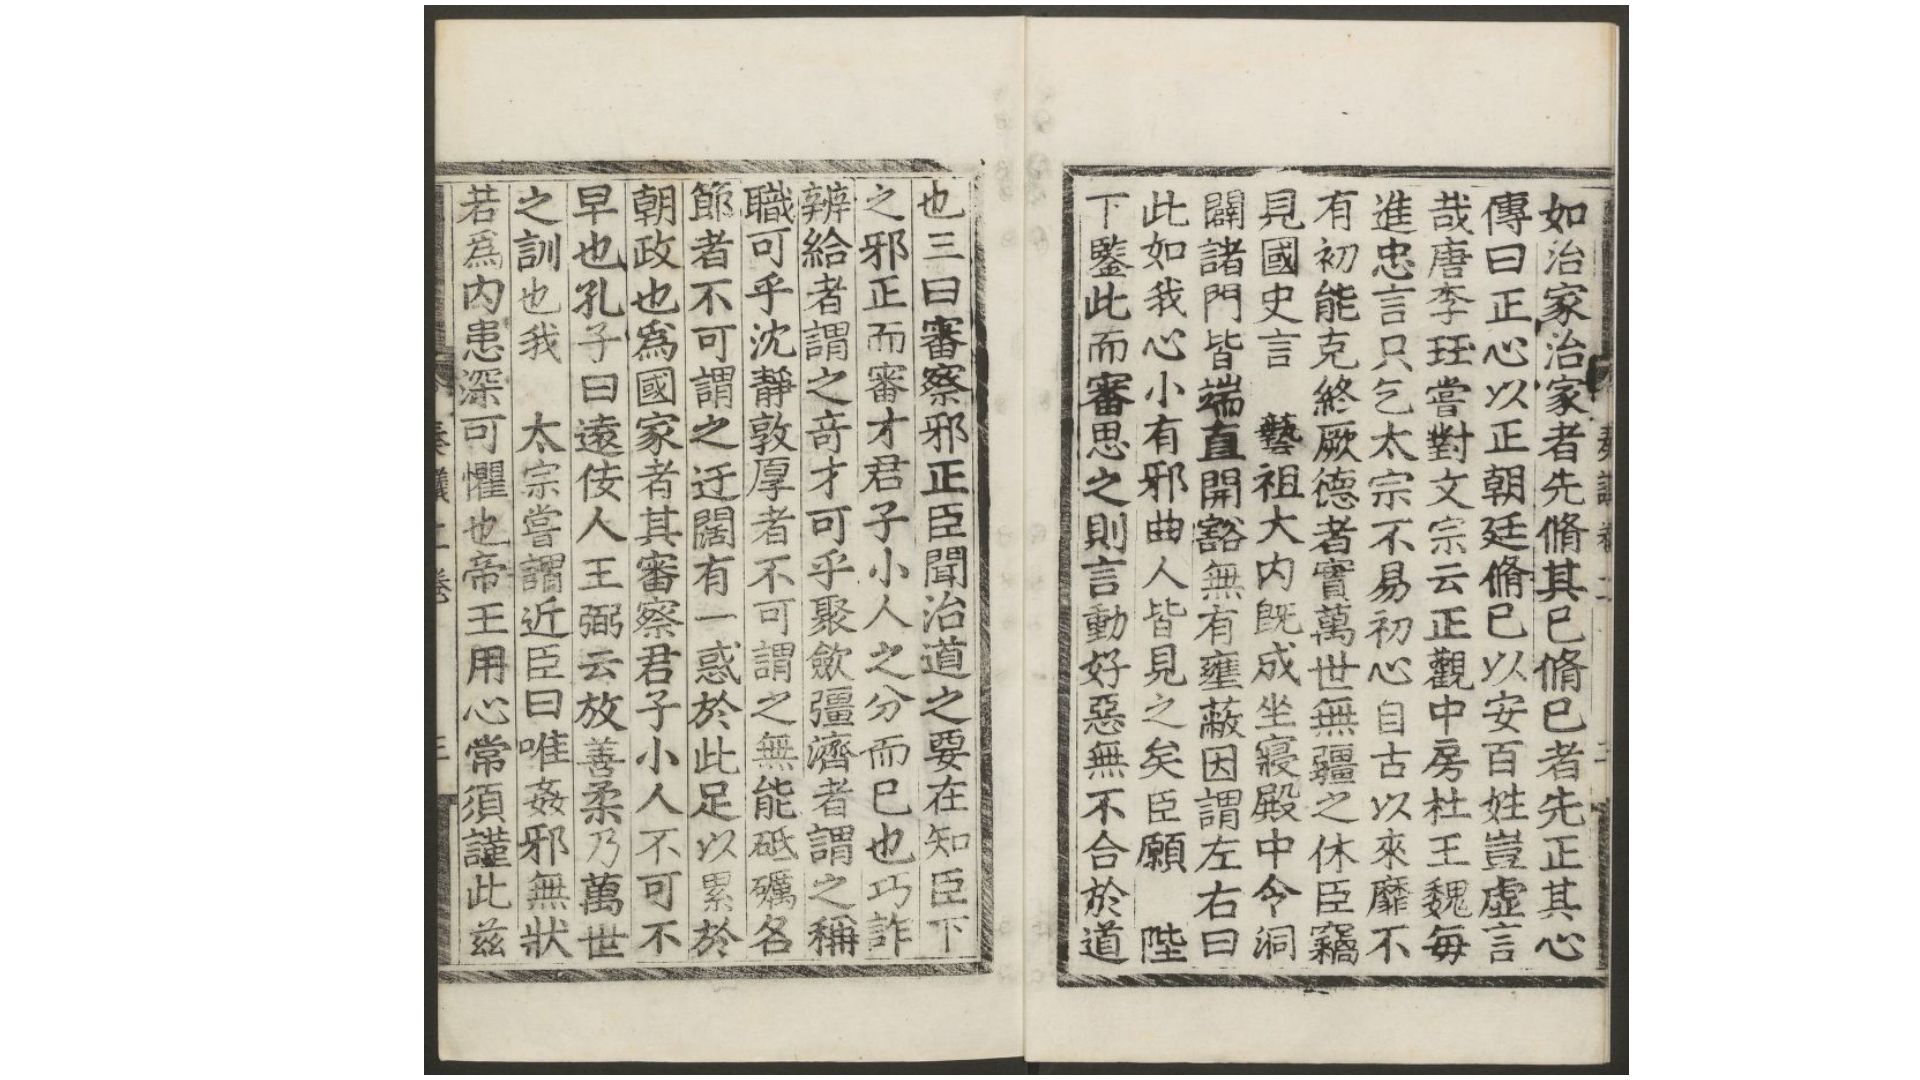 如治家治家者先脩其已脩已者先正其心
傳曰正心以正朝廷脩已以安百姓豈虛言
哉唐李珏嘗對文宗云正觀中房杜王魏每
進忠言只乞太宗不易初心自古以來靡不
有初能克終厥德者實萬世無疆之休臣竊
見國史言　藝祖大内旣成坐寢殿中令洞
闢諸門皆端直開豁無有壅蔽因謂左右曰
此如我心小有邪曲人皆見之矣臣願　陛
下鑒此而審思之則言動好惡無不合於道
也三曰審察邪正臣聞治道之要在知臣下
之邪正而審才君子小人之分而已也巧詐
辨給者謂之竒才可乎聚歛彊濟者謂之稱
職可乎沈靜敦厚者不可謂之無能砥礪名
節者不可謂之迂闊有一惑於此足以累於
朝政也爲國家者其審察君子小人不可不
早也孔子曰遠佞人王弼云放善柔乃萬世
之訓也我　太宗嘗謂近臣曰唯姦邪無狀
若爲内患深可懼也帝王用心常須謹此兹